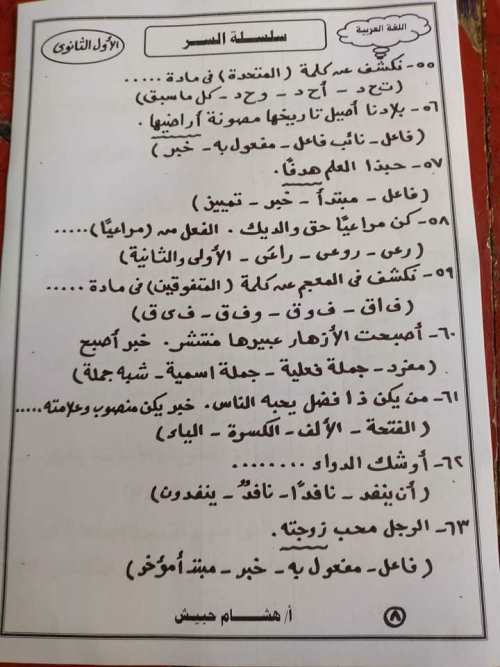 اللغة العربية
سلسلة السر
الأول الثانوى
٥٥- نكشف عن كلمة (المتحدة) فى مادة .....
(تحد - أحد - وحد - كل ماسبق)
٥٦- بلادنا أصيل تاريخها مصونة أراضيها.
(فاعل - نائب فاعل - مفعول به - خبر)
٥٧- حبذا العلم هدفًا.
(فاعل - مبتدأ - خبر - تمييز)
٥٨- كن مراعيًا حق والديك. الفعل من (مراعيًا).....
(رعى - روعى - راعَى - الأولى والثانية)
٥٩- نكشف فى المعجم عن كلمة (المتفوقين) فى مادة .....
(ف أ ق - ف و ق - و ف ق - ف ى ق)
٦٠- أصبحت الأزهار عبيرها منتشر. خبر أصبح
(مفرد - جملة فعلية - جملة اسمية - شبه جملة)
٦١- من يكن ذا فضل يحبه الناس. خبر يكن منصوب وعلامته.....
(الفتحة - الألف - الكسوة - الياء)
٦٢- أوشك الدواء ........
(أن ينفد - نافدًا - نافدٌ - ينفدون)
٦٣- الرجل محب زوجته.
(فاعل - مفعول به - خبر - مبتدأ مؤخر)
أ/ هشام حبيش
٨